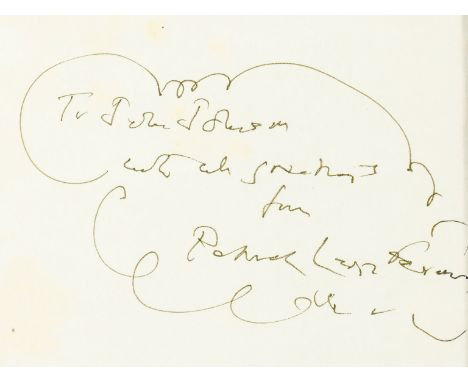 To John Johnson
with all greetings
from
Patrick Leigh Fermor